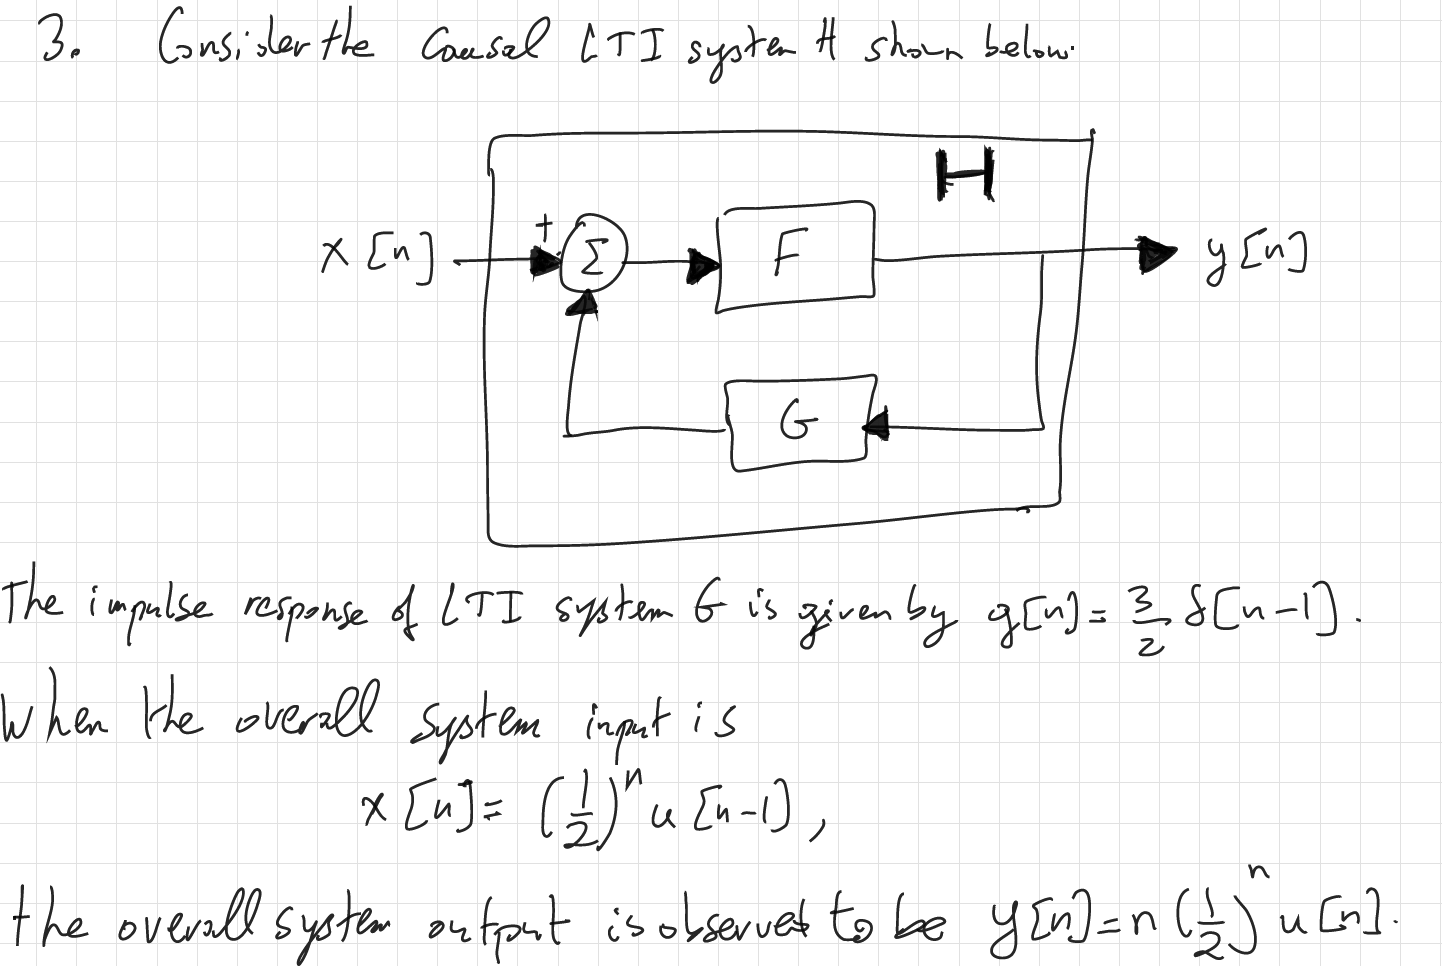 3. Consider the causal LTI system H shown below.
H
x[n] + Σ F y[n]
G
The impulse response of LTI system G is given by g[n] = 3/2 δ[n-1].
When the overall system input is
x[n] = (1/2)^n u[n-1],
the overall system output is observed to be y[n] = n(1/2)^n u[n].